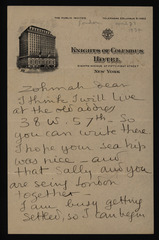 KNIGHTS OF COLUMBUS
HOTEL
NEW YORK
Zohmah Dear
I think I will live
at the old address
38 W. 57th. So
you can write there
I hope your sea trip
was nice - and
that Sally and you
are seeing London
together -
I am busy getting
settled, so I can begin